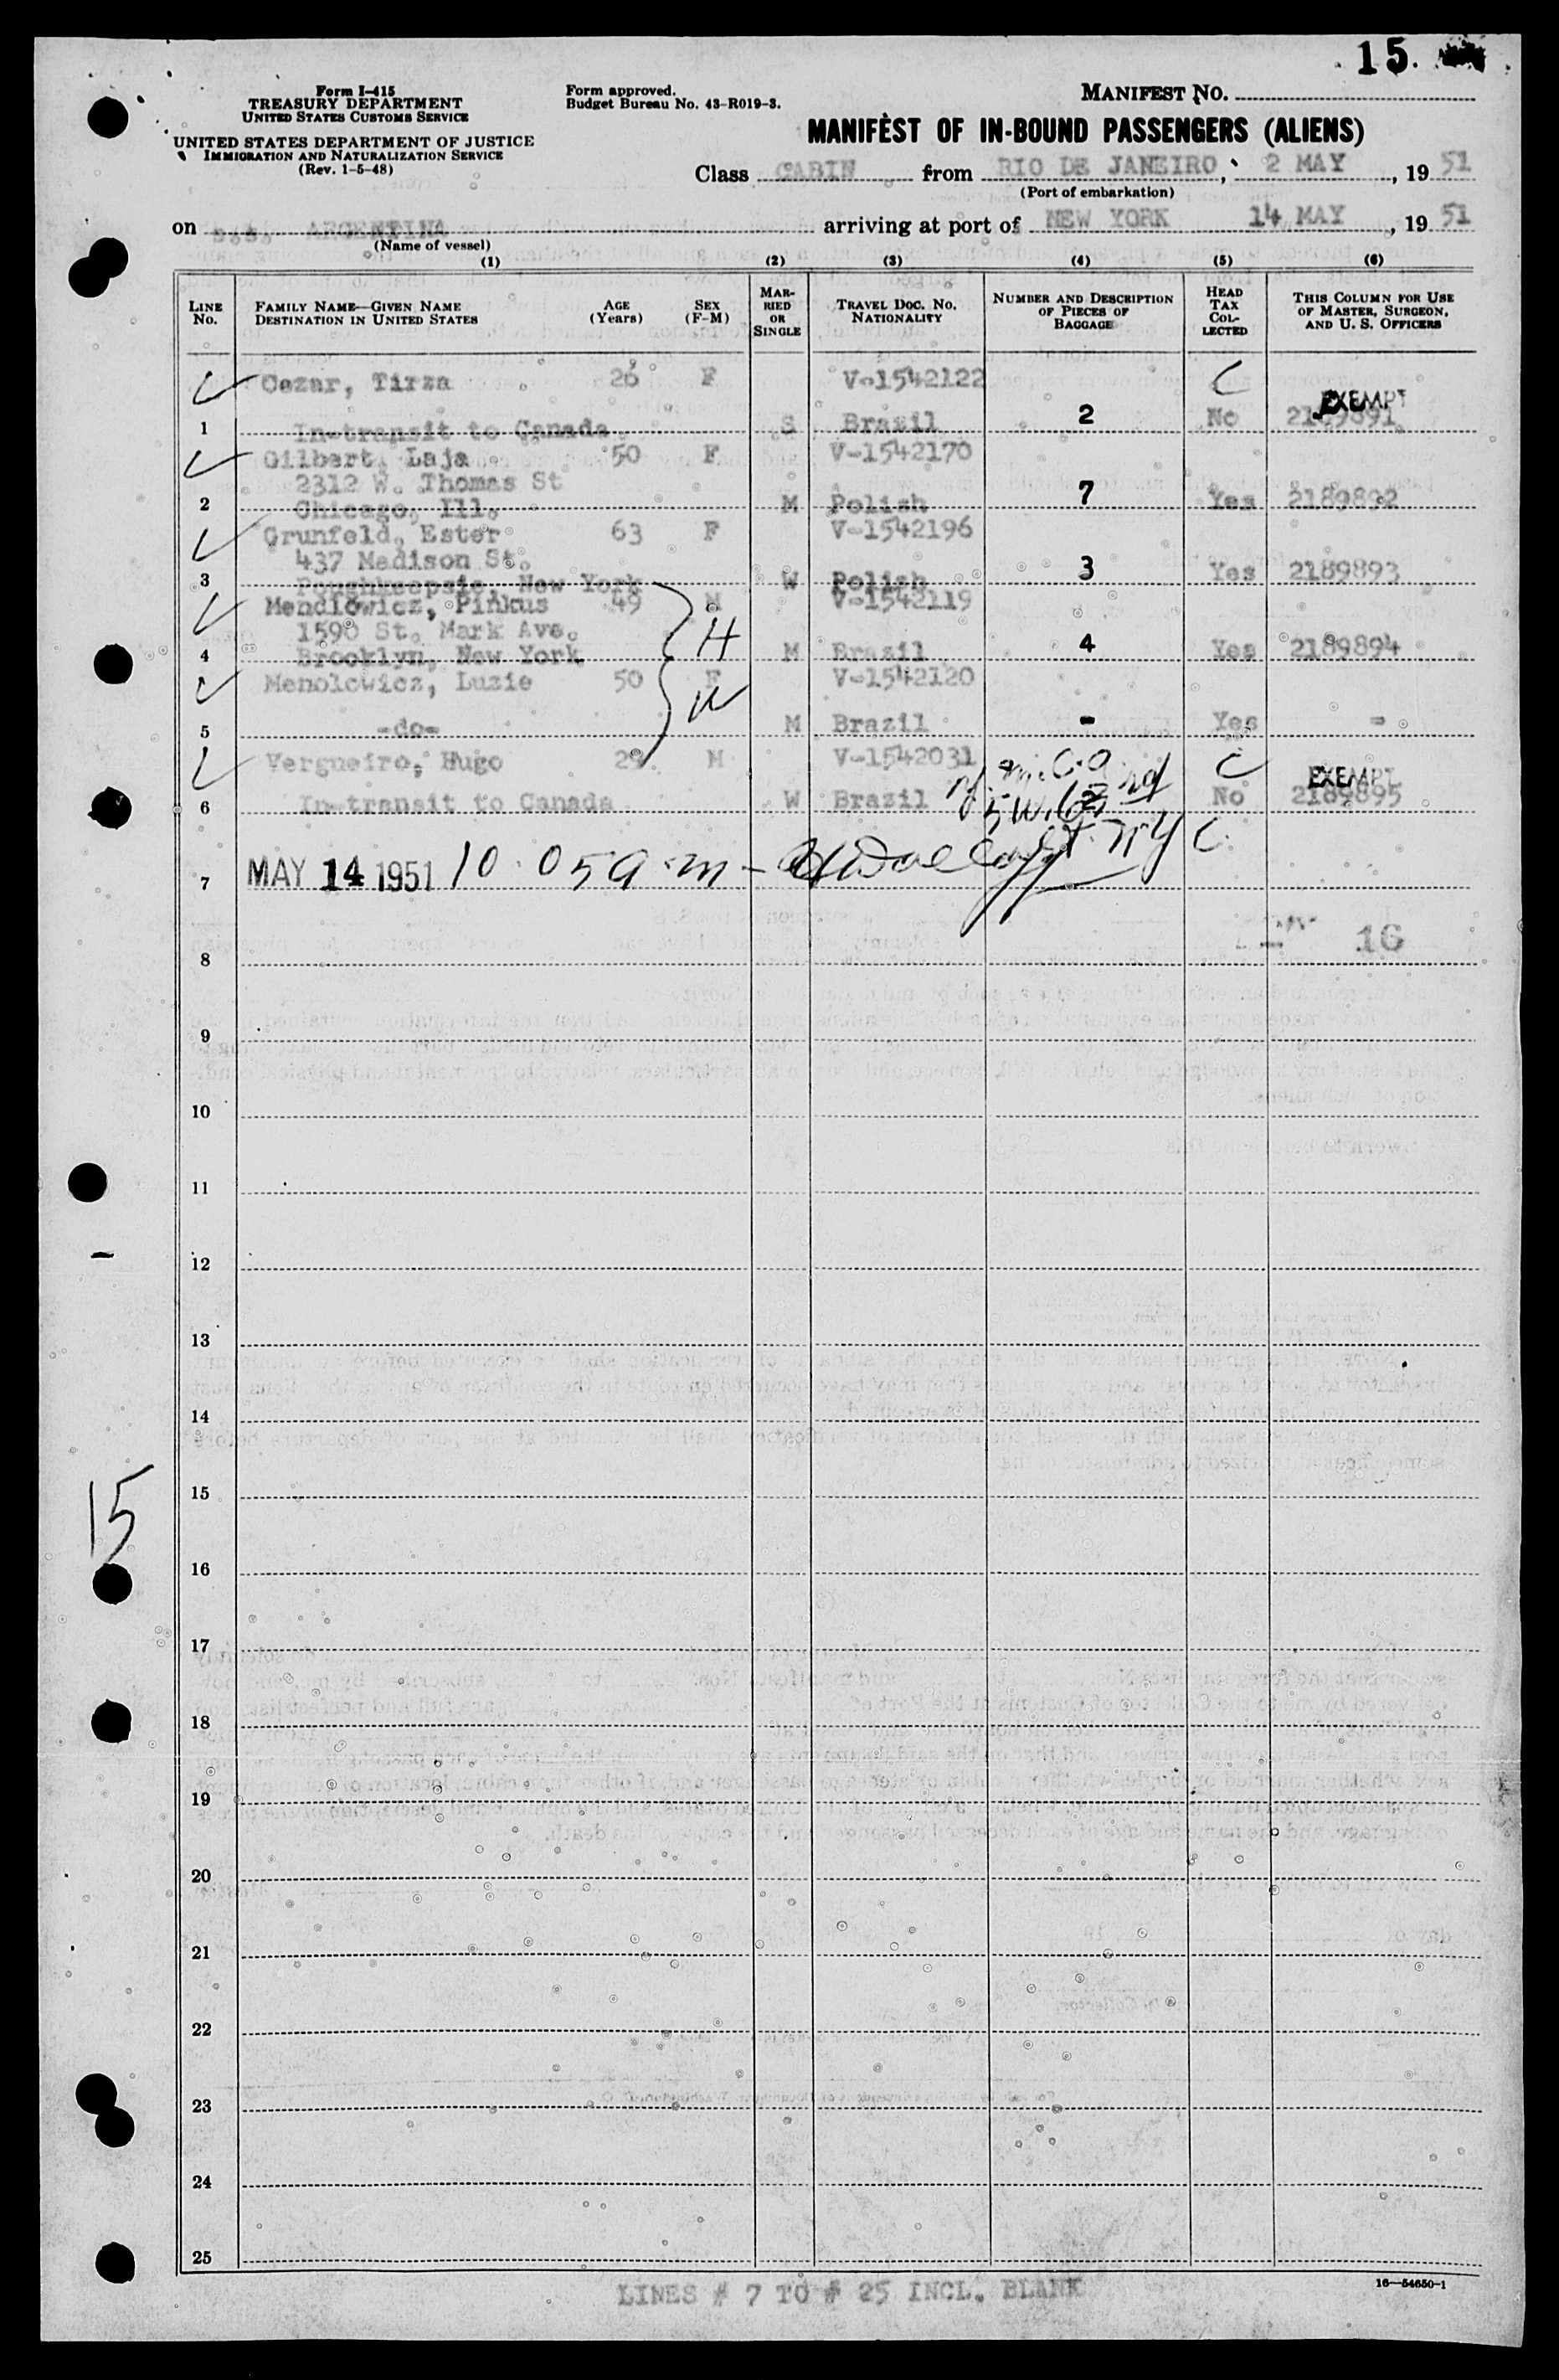 15.
Form I-415
TREASURY DEPARTMENT
UNITED STATES CUSTOMS SERVICE
UNITED STATES DEPARTMENT OF JUSTICE
IMMIGRATION AND NATURALIZATION SERVICE
(Rev. 1-5-48)
Form approved.
Budget Bureau No. 43-R019-3.
MANIFEST NO.
MANIFEST OF IN-BOUND PASSENGERS (ALIENS)
Class CABIN from RIO DE JANEIRO, 2 MAY, 19 51
(Port of embarkation)
on s.s. ARGENTINA arriving at port of NEW YORK 14 MAY, 19 51
(Name of vessel)
(1) (2) (3) (4) (5) (6)
LINE NO. FAMILY NAME—GIVEN NAME DESTINATION IN UNITED STATES AGE (Years) SEX (F-M) MARRIED OR SINGLE TRAVEL DOC. NO. NATIONALITY NUMBER AND DESCRIPTION OF PIECES OF BAGGAGE HEAD TAX COLLECTED THIS COLUMN FOR USE OF MASTER, SURGEON, AND U. S. OFFICERS
Cezar, Tirza 26 F V-1542122 C EXEMPT
1 In-transit to Canada S Brazil 2 No 2189891
Gilbert, Laja 50 F V-1542170
2312 W. Thomas St
2 Chicago, Ill. M Polish 7 Yes 2189892
Grunfeld, Ester 63 F V-1542196
437 Madison St.
3 Poughkeepsie, New York W Polish 3 Yes 2189893
Mendlowicz, Pinkus 49 M V-1542119
1590 St. Mark Ave. H
4 Brooklyn, New York M Brazil 4 Yes 2189894
Menolcwicz, Luzie 50 F V-1542120
W
5 -do- M Brazil - Yes -
Vergueiro, Hugo 29 M V-1542031 C EXEMPT
6 In-transit to Canada W Brazil No 2189895
7 MAY 14 1951 10 05 a.m -
16
8
9
10
11
12
13
14
15
15
16
17
18
19
20
21
22
23
24
25
LINES # 7 TO # 25 INCL. BLANK
16—54650-1